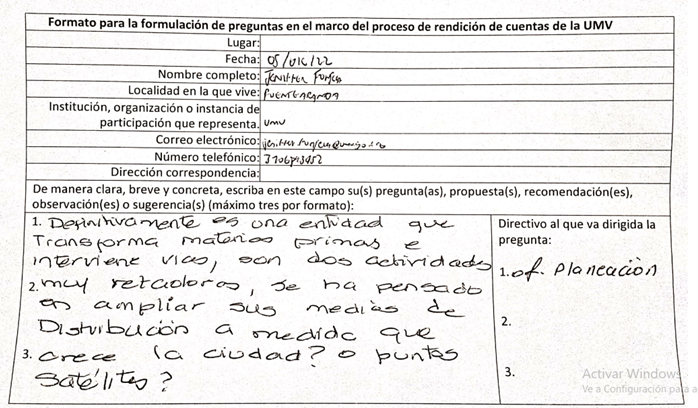 Formato para la formulación de preguntas en el marco del proceso de rendición de cuentas de la UMV
Lugar:
Fecha: 05/DIC/22
Nombre completo: Jenifer
Localidad en la que vive: PUENTEARANDA
Institución, organización o instancia de
participación que representa. UMV
Correo electrónico:
Número telefónico:
Dirección correspondencia:
De manera clara, breve y concreta, escriba en este campo su(s) pregunta(as), propuesta(s), recomendación(es),
observación(es) o sugerencia(s) (máximo tres por formato):
1. Definitivamente es una entidad que
Transforma materias primas e
interviene vias, son dos actividades
2. muy retadoras, se ha pensado
en ampliar sus medias de
Distribución a medida que
3. crece la ciudad? o puntos
satélites?
Directivo al que va dirigida la
pregunta:
1. of. Planeación
2.
3.
Activar Windows
Ve a Configuración para a